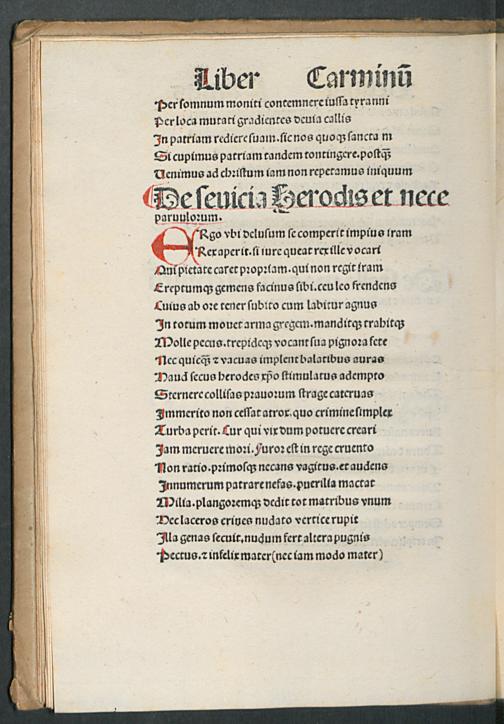 Liber Carminū
Per somnum moniti contemnere iussa tyranni
Per loca mutati gradientes deuia callis
In patriam rediere suam. sic nos quoqꝫ sancta m
Si cupimus patriam tandem tontingere. postqꝫ̄
Uenimus ad christum iam non repetamus iniquum
De seuicia Herodis et nece
paruulorum.
ERgo vbi delusum se comperit impius iram
Rex aperit. si iure queat rex ille vocari
Qui pietate caret propriam. qui non regit iram
Ereptumqꝫ gemens facinus sibi. ceu leo frendens
Cuius ab ore tener subito cum labitur agnus
In totum mouet arma gregem. manditqꝫ trahitqꝫ
Molle pecus. trepideqꝫ vocant sua pignora fete
Nec quicqꝫ̄ ⁊ vacuas implent balatibus auras
Haud secus herodes xp̄o stimulatus adempto
Sternere collisas prauorum strage cateruas
Immerito non cessat atrox. quo crimine simplex
Turba perit. Cur qui vix dum potuere creari
Iam meruere mori. Furor est in rege cruento
Non ratio. primosqꝫ necans vagitus. et audens
Innumerum patrare nefas. puerilia mactat
Milia. plangoremqꝫ dedit tot matribus vnum
Hec laceros crines nudato vertice rupit
Illa genas secuit. nudum fert altera pugnis
Pectus. ⁊ infelix mater (nec iam modo mater)